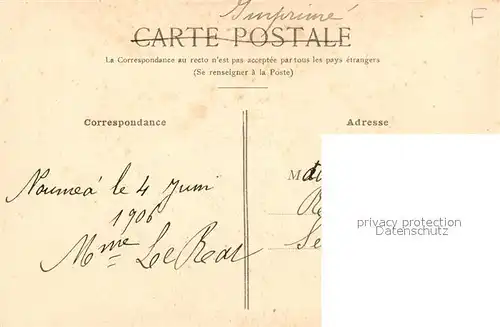 Imprimé
F
CARTE POSTALE
La Correspondance au recto n'est pas acceptée par tous les pays étrangers
(Se renseigner à la Poste)
Correspondance
Adresse
Nouméa le 4 Juin
1906
Mme
privacy protection
Datenschutz